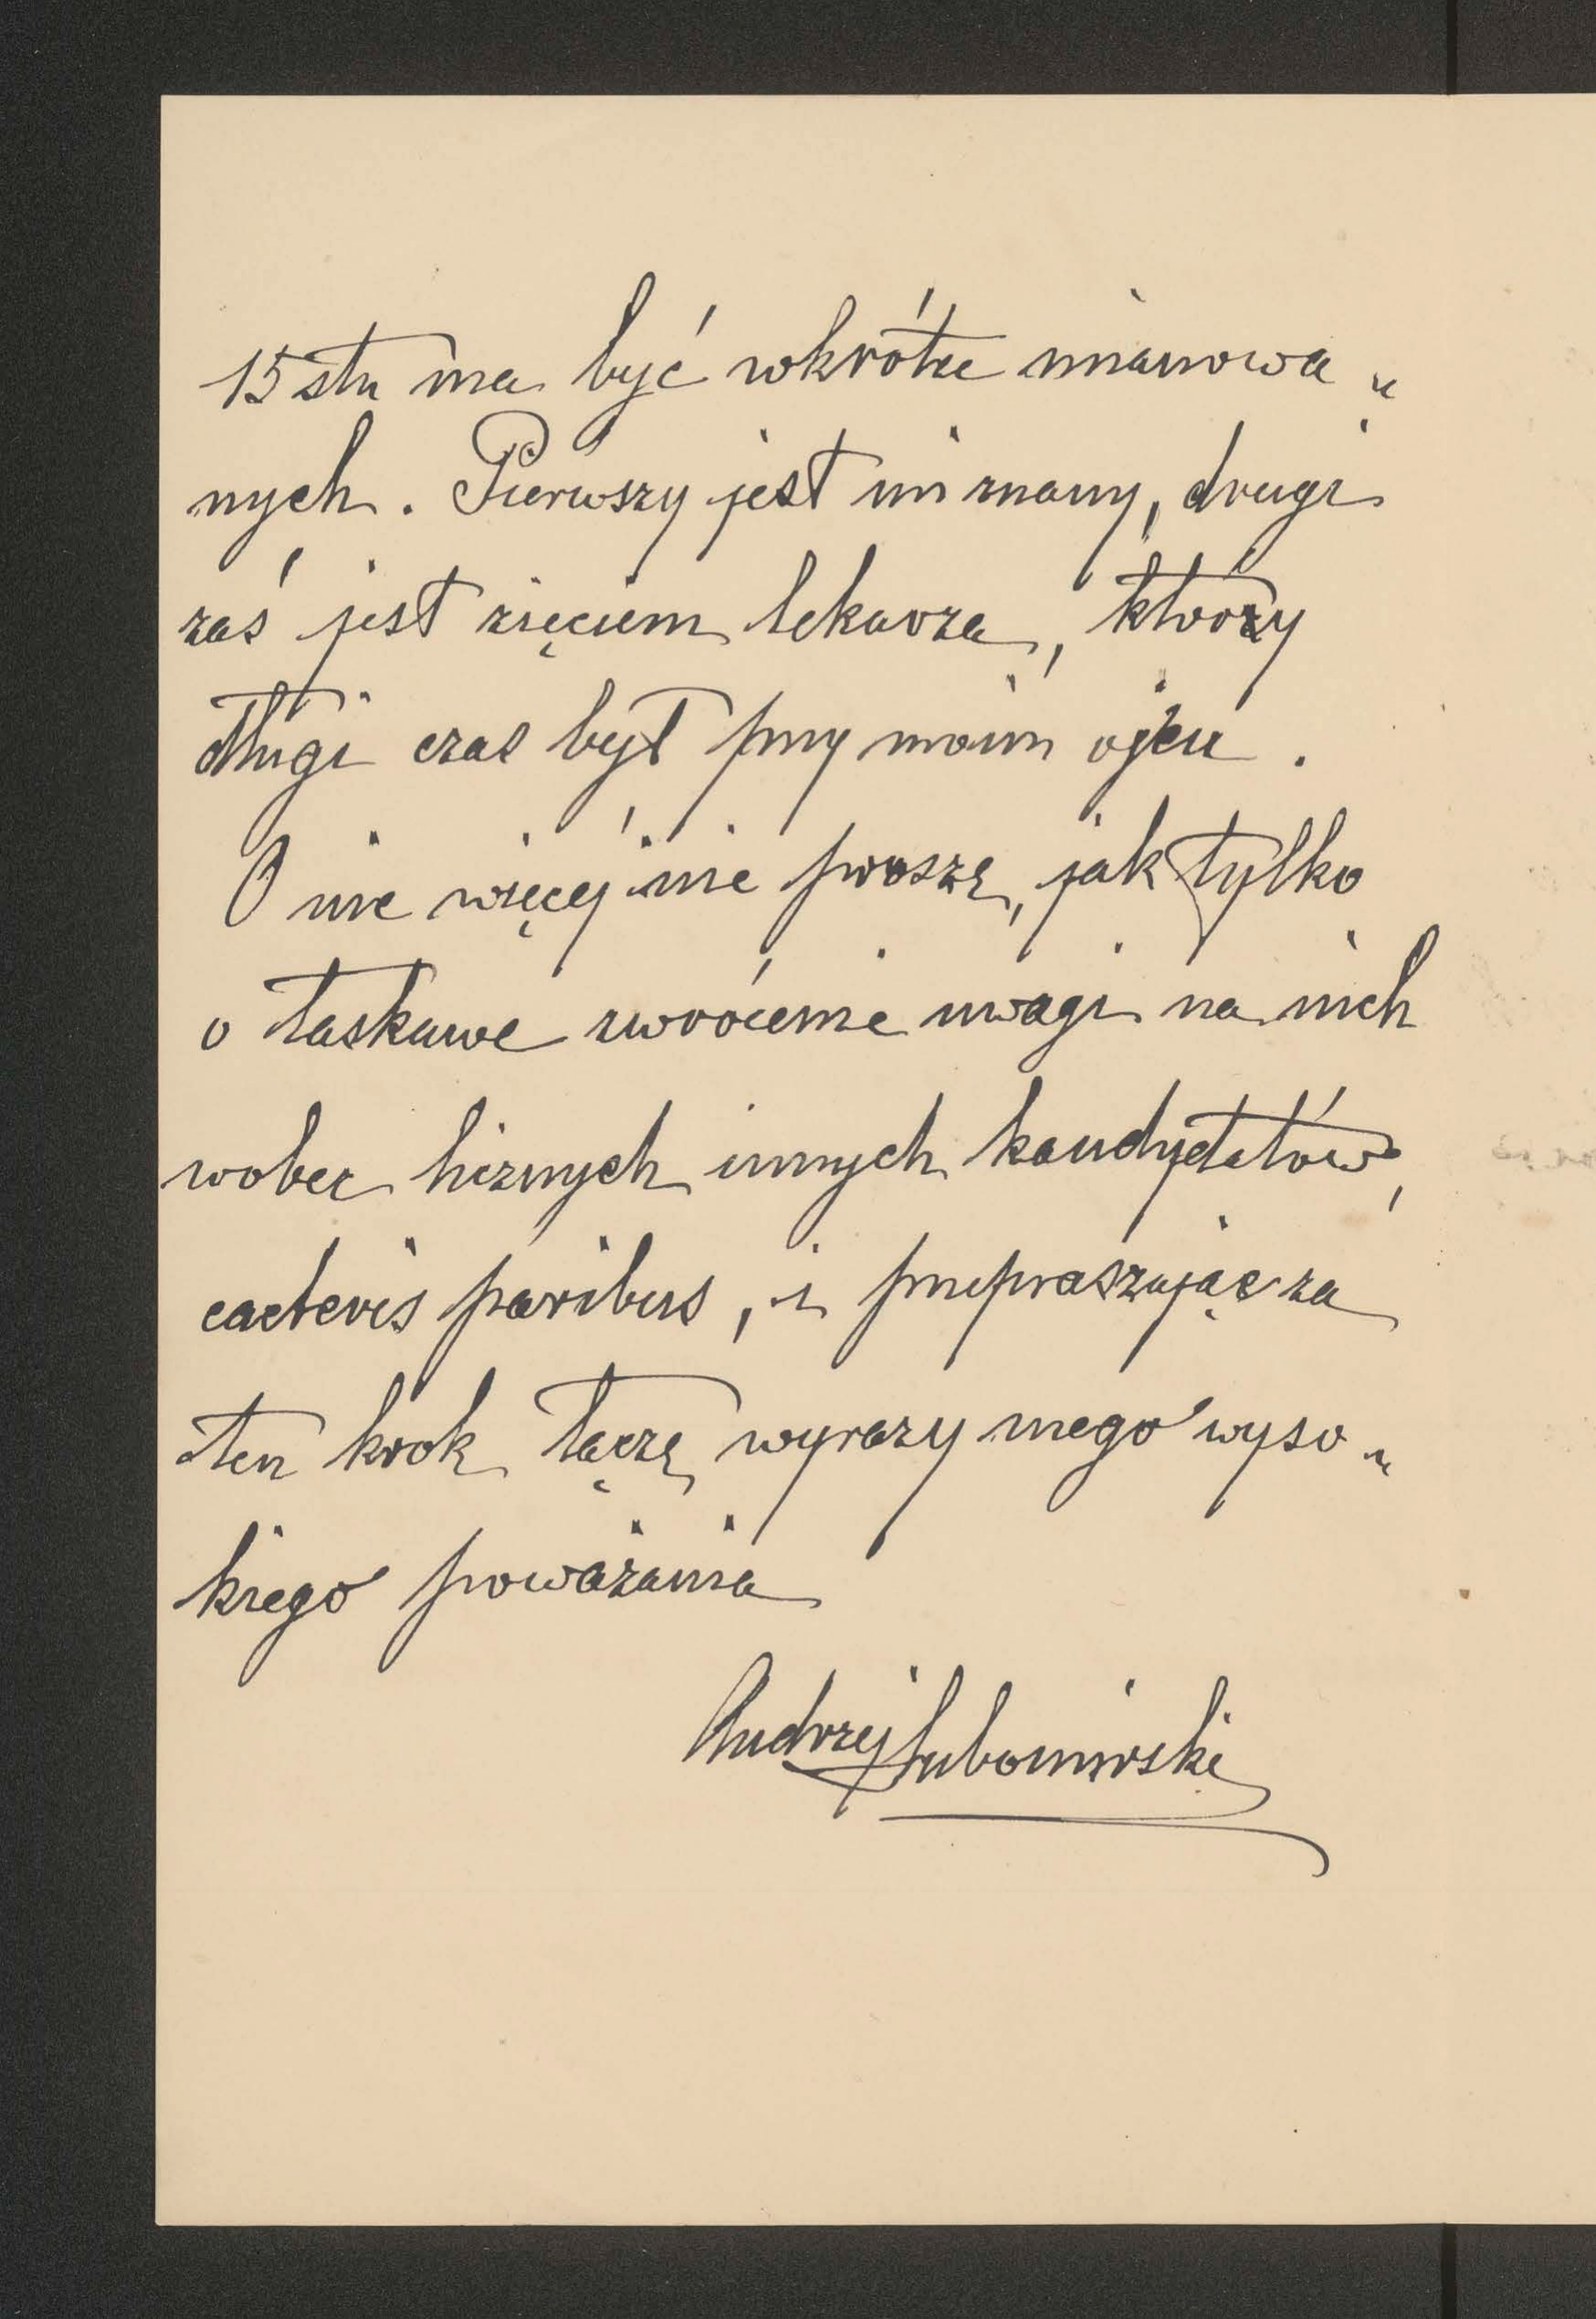 15stu ma być wkrótce mianowa„
nych. Pierwszy jest mi znany, drugi
zaś jest zięciem lekarza, który
długi czas był przy moim ojcu.
O nic więcej nie proszę, jak tylko
o łaskawe zwrócenie uwagi na nich
wobec licznych innych kandydatów,
caeteris paribus, i przepraszając za
ten krok łączę wyrazy mego wyso„
kiego poważania
Andrzej Lubomirski